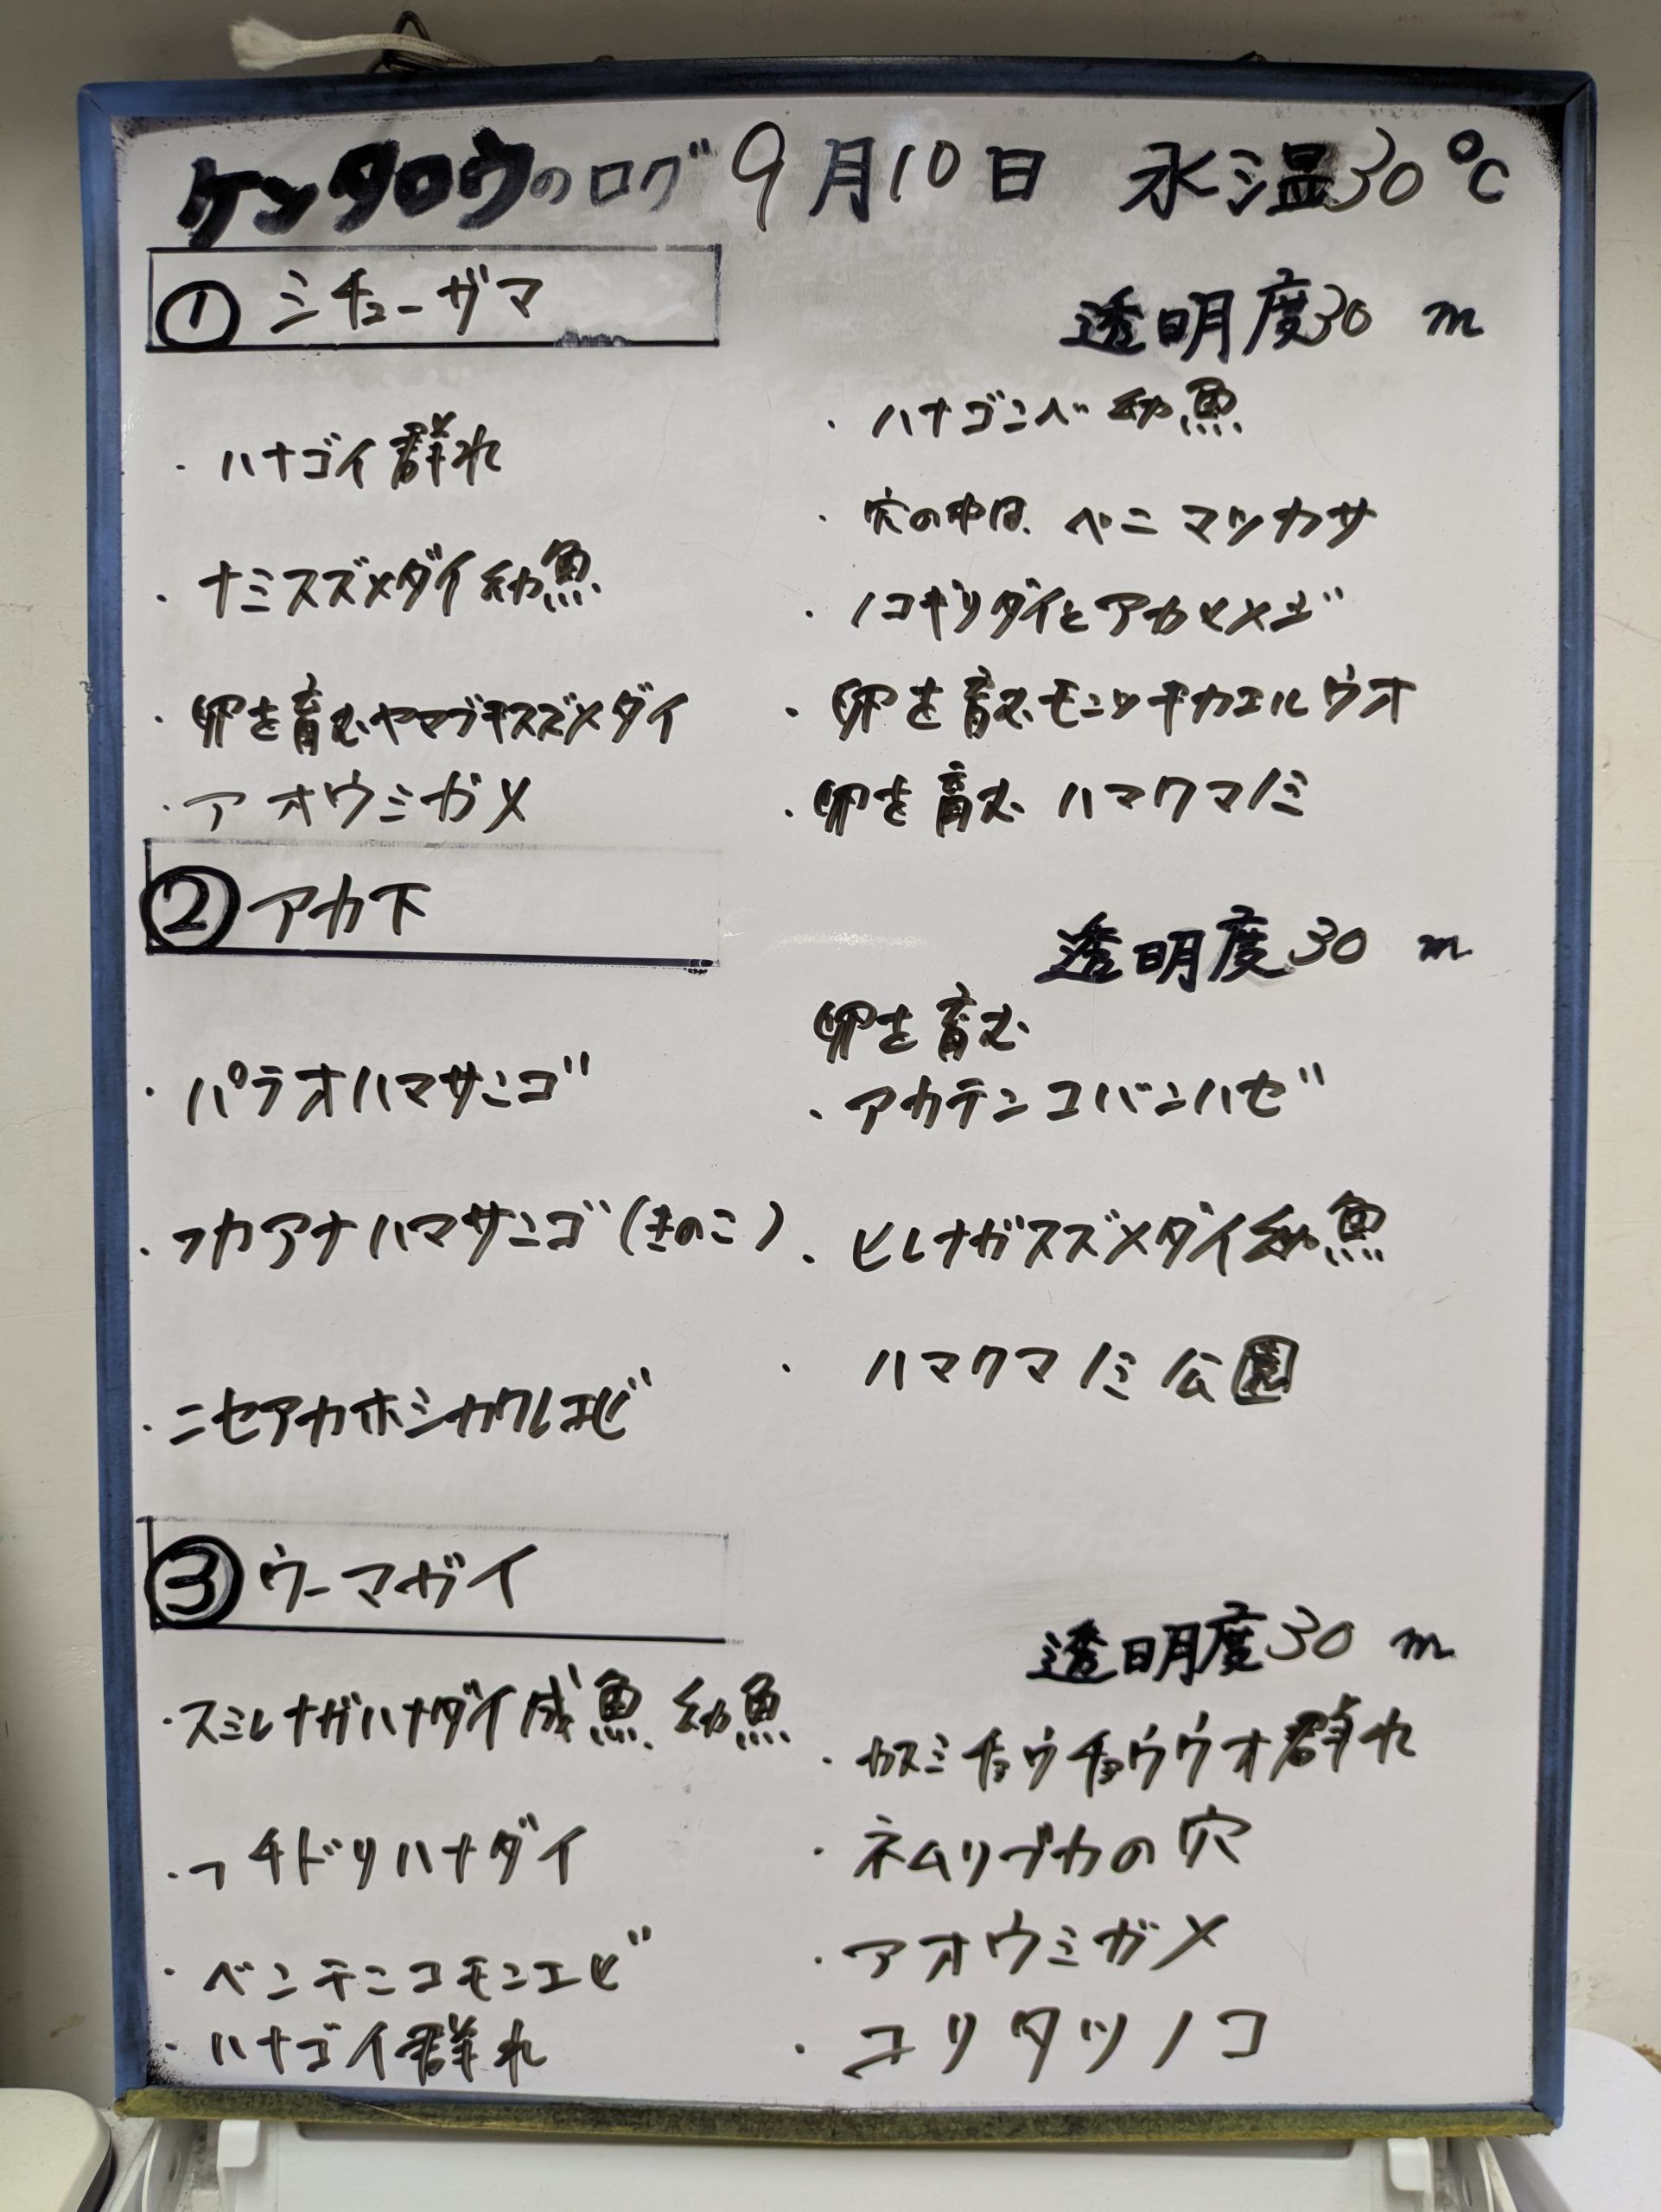 ケンタロウのログ 9月10日 水温30℃
① ミチューザマ
透明度30 m
・ハナゴイ群れ
・ナミスズメダイ幼魚
・卵を育むヤマブキスズメダイ
・アオウミガメ
・ハナゴンベ 幼魚
・穴の中は、ベニマツカサ
・ノコギリダイとアカヒメジ
・卵を育むモンツキカエルウオ
・卵を育む ハマクマノミ
② アカ下
透明度30 m
・パラオハマサンゴ
・フカアナハマサンゴ(きのこ)
・ニセアカホシカクレエビ
卵を育む
・アカテンコバンハゼ
・ヒレナガスズメダイ幼魚
・ハマクマノミ公園
③ ウーマガイ
透明度30 m
・スミレナガハナダイ成魚、幼魚
・フチドリハナダイ
・ベンテンコモンエビ
・ハナゴイ群れ
・カスミチョウチョウウオ群れ
・ネムリブカの穴
・アオウミガメ
・ユリタツノコ